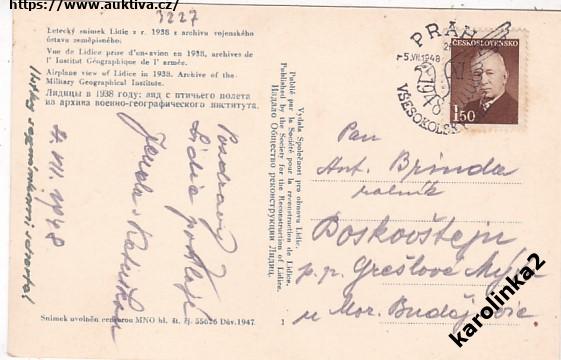 https://www.auktiva.cz/
3227
Letecký snímek Lidic z r. 1938 z archivu vojenského
ústavu zeměpisného.
Vue de Lidice prise d'en-avion en 1938, archives de
l' Institut Géographique de l' armée.
Airplane view of Lidice in 1938. Archive of the
Military Geographical Institute.
Лидицы в 1938 году: вид с птичьего полета
из архива военно-географического института.
4. VII. 1948
Pozdrav z
Lidic posílají
Vydala Společnost pro obnovu Lidic.
Publié par la Société pour la reconstruction de Lidice.
Published by the Society for the Reconstruction of Lidice.
Издало Общество реконструкции Лидиц.
PRAHA
-5.VII.1948
VŠESOKOLSK
ČESKOSLOVENSKO
1.50
Pan
Ant. Brinda
rolník
Boskovštejn
p. p. Grešlové Mýto
u Mor. Budějovic
Snímek uvolněn censurou MNO hl. št. čj. 55626 Dův. 1947.
1
karolinka2